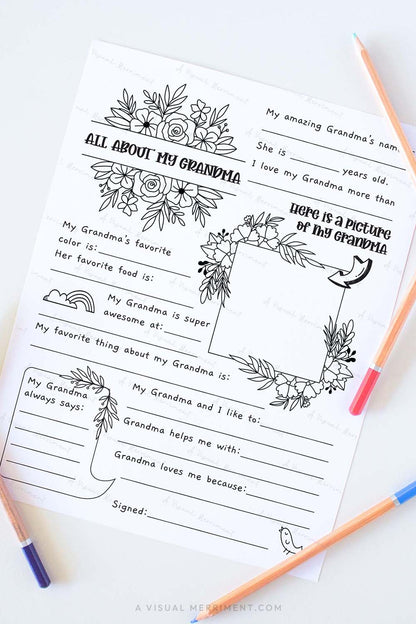 My amazing Grandma's nam
ALL ABOUT MY GRANDMA
She is ________ years old.
I love my Grandma more than
Here is a picture
of my Grandma
My Grandma's favorite
color is:
Her favorite food is:
My Grandma is super
awesome at:
My favorite thing about my Grandma is:
My Grandma
always says:
My Grandma and I like to:
Grandma helps me with:
Grandma loves me because:
Signed:
A Visual Merriment
A VISUAL MERRIMENT.COM